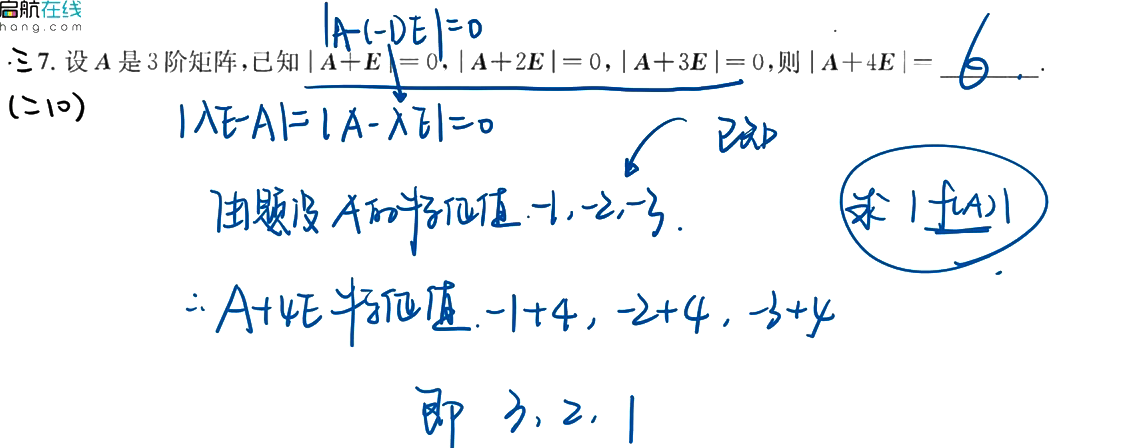 启航在线
hang.com
|A-(-1)E|=0
三7. 设 A 是 3 阶矩阵,已知 | A+E | = 0, | A+2E | = 0, | A+3E | = 0,则 | A+4E | = 6.
(二10)
|λE-A|=|A-λE|=0
已知
由题设 A的特征值 -1, -2, -3.
求 |f(A)|
∴ A+4E 特征值 -1+4, -2+4, -3+4
即 3, 2, 1